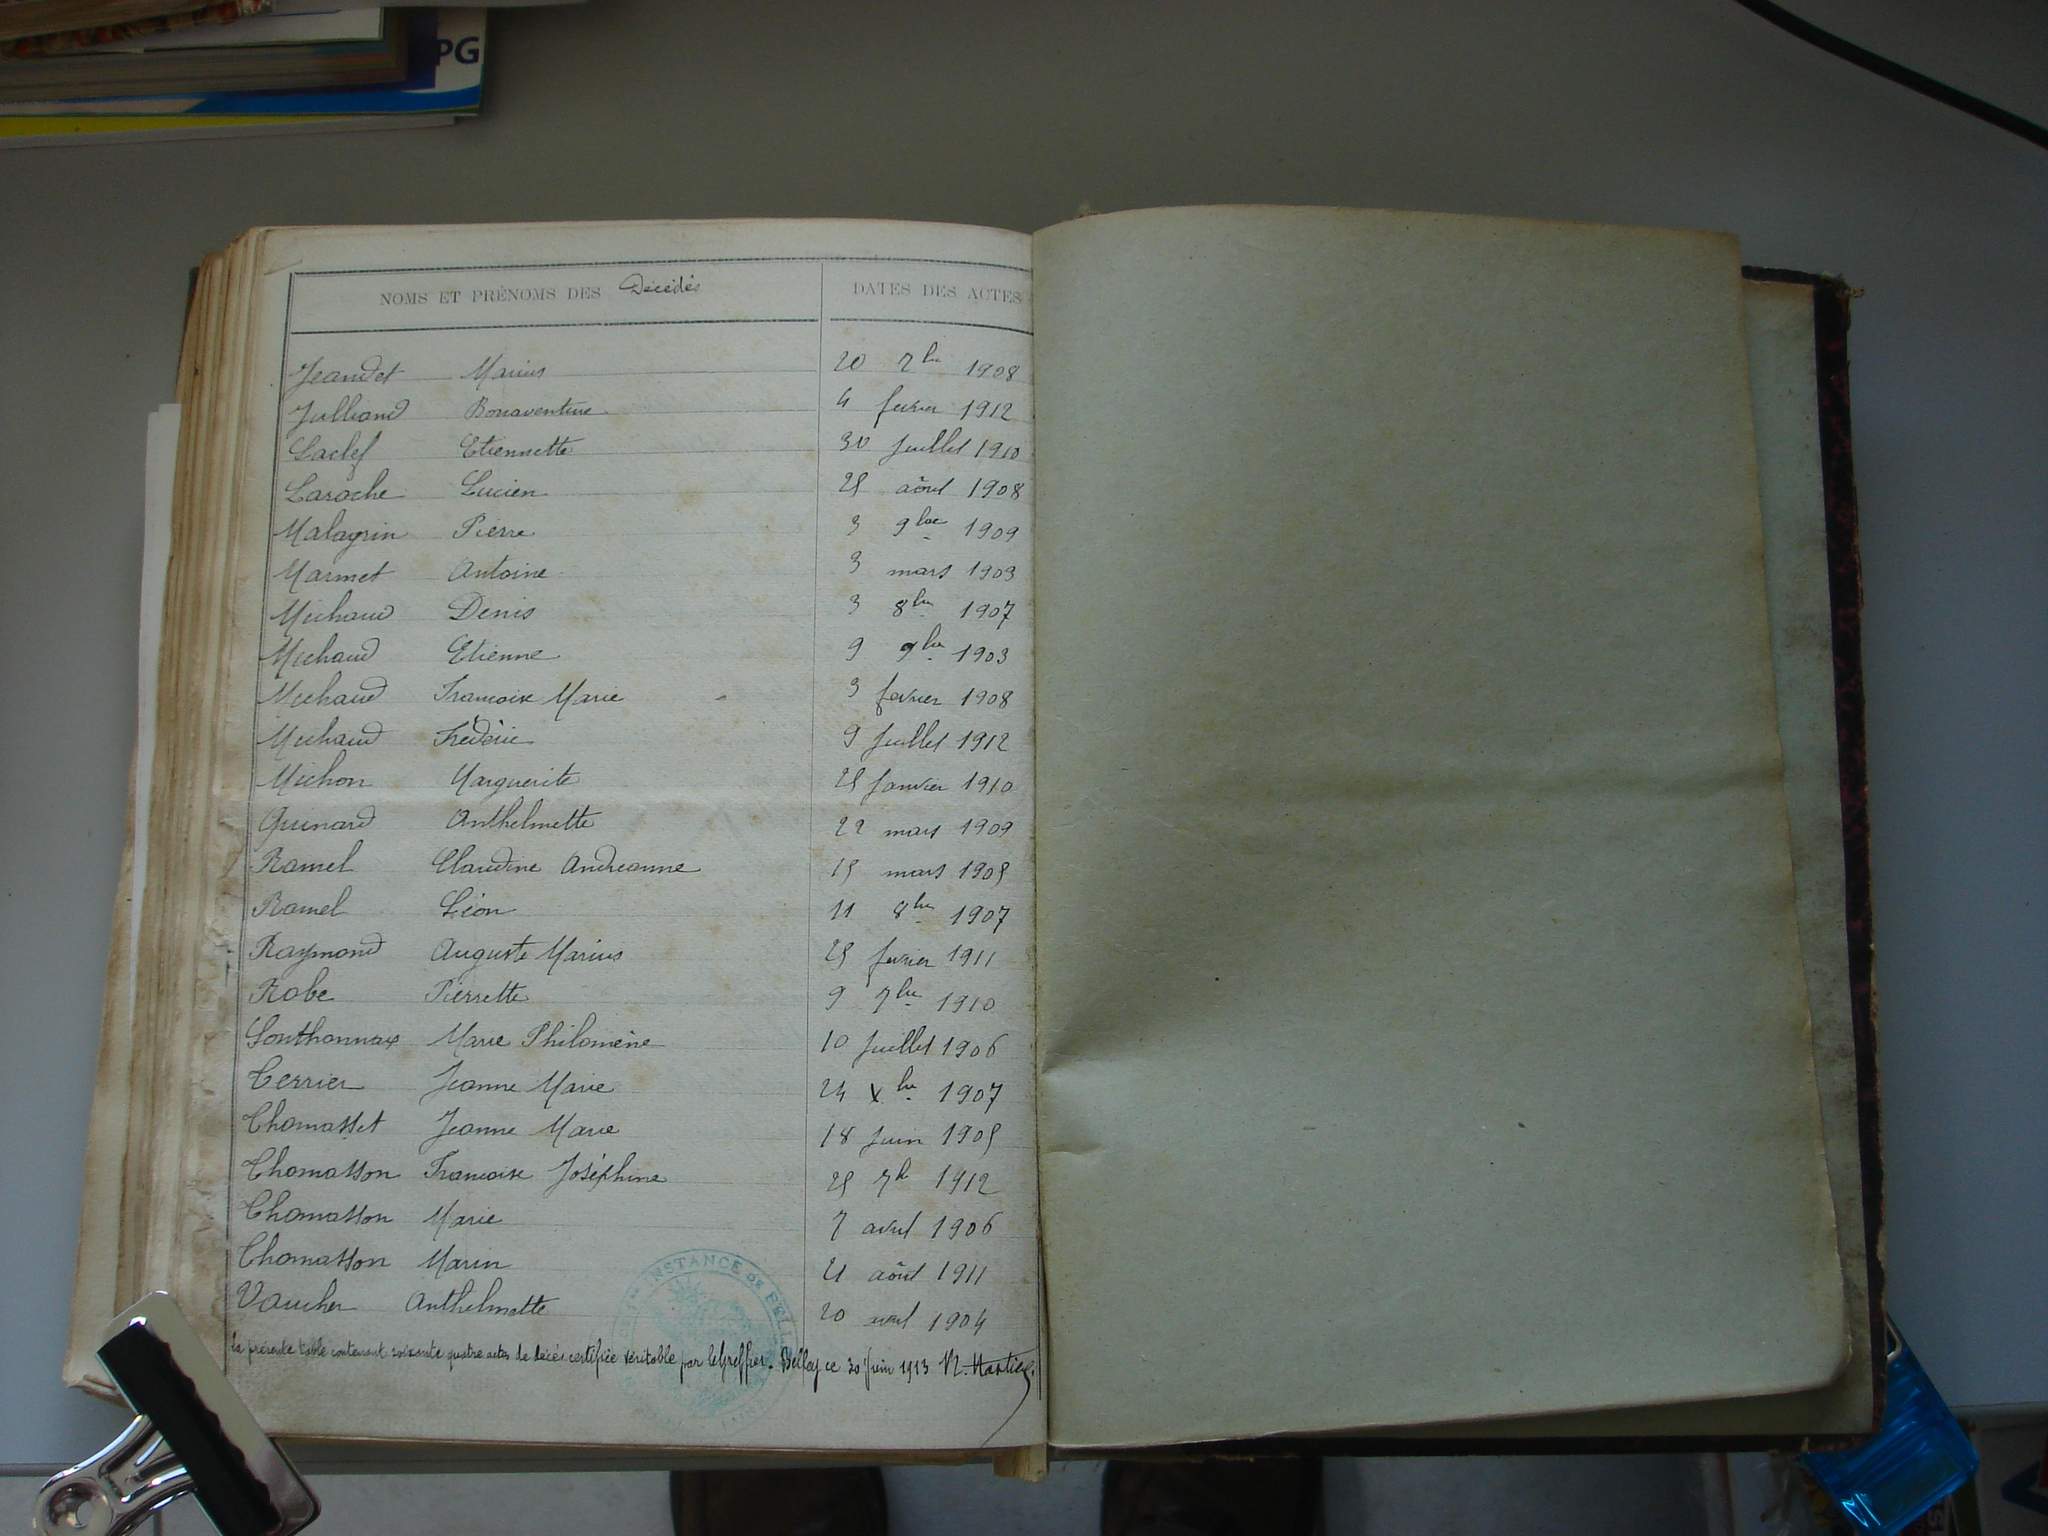 PG
NOMS ET PRÉNOMS DES Décédés DATES DES ACTES
Jeandet Marius 20 7bre 1908
Julliand Bonaventure 4 fevrier 1912
Laclef Etiennette 30 Juillet 1910
Laroche Lucien 25 août 1908
Malagrin Pierre 3 9bre 1909
Marmet Antoine 3 mars 1903
Michaud Denis 3 8bre 1907
Michaud Etienne 9 9bre 1903
Michaud Francoise Marie 3 fevrier 1908
Michaud Frédéric 9 Juillet 1912
Michon Marguerite 25 Janvier 1910
Quinard Anthelmette 22 mars 1909
Ramel Claudine Andreanne 15 mars 1905
Ramel Léon 11 8bre 1907
Raymond Auguste Marius 25 fevrier 1911
Robe Pierrette 9 7bre 1910
Sonthonnax Marie Philomène 10 Juillet 1906
Terrier Jeanne Marie 24 Xbre 1907
Thomasset Jeanne Marie 18 Juin 1905
Thomasson Francoise Joséphine 25 7b 1912
Thomasson Marie 7 avril 1906
Thomasson Marin 21 août 1911
Vaucher Anthelmette 20 avril 1904
INSTANCE DE BELL
La présente table contenant soixante quatre actes de décès certifiée véritable par le Greffier. Belley ce 30 Juin 1913